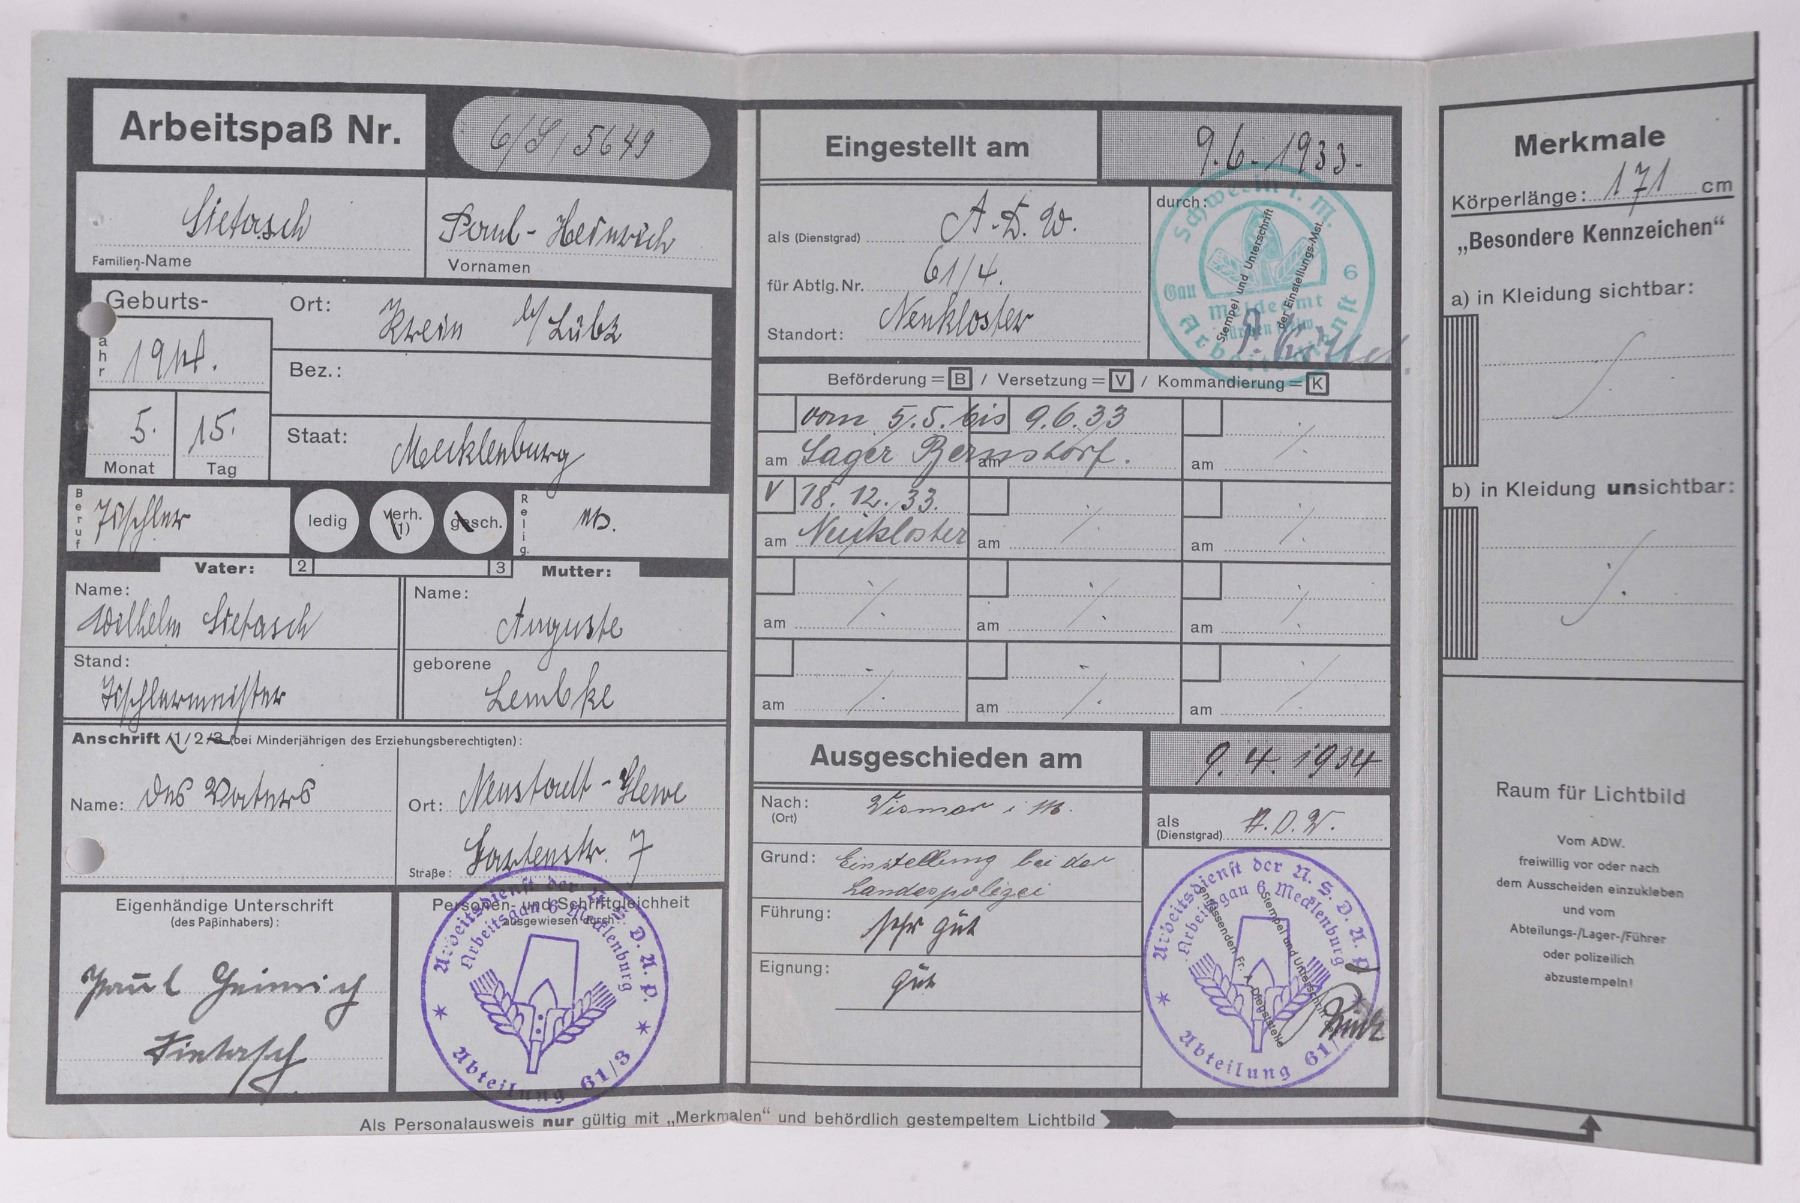 Arbeitspaß Nr. 6/S/5649
Sietasch
Familien-Name
Paul-Heinrich
Vornamen
Geburts-
Jahr
1914.
5.
Monat
15.
Tag
Ort: Krein b/Lübz
Bez.:
Staat: Mecklenburg
Beruf
Tischler
ledig
verh.
(1)
gesch.
Relig.
ev.
Vater:
2
3
Mutter:
Name:
Wilhelm Sietasch
Stand:
Tischlermeister
Name:
Auguste
geborene
Lembke
Anschrift /1/2/3 (bei Minderjährigen des Erziehungsberechtigten):
Name: des Vaters
Ort: Neustadt-Glewe
Straße: Gartenstr. 7
Eigenhändige Unterschrift
(des Paßinhabers):
Paul Heinrich
Sietasch
Personen- und Schriftgleichheit
ausgewiesen durch
Arbeitsdienst der N.S.D.A.P.
Arbeitsgau 6 Mecklenburg
Abteilung 61/3
Eingestellt am 9.6.1933.
als (Dienstgrad) A.D.W.
für Abtlg. Nr. 61/4.
Standort: Neukloster
durch:
Stempel und Unterschrift
der Einstellungs-Mst.
Schwerin i. M.
Gau 6
Meldeamt
Arbeitsdienst
Beförderung = B / Versetzung = V / Kommandierung = K
vom 5.5. bis 9.6.33
am Lager Bernstorf.
am
am
V 18.12.33.
am Neukloster
am
am
am
am
am
am
am
am
Ausgeschieden am 9.4.1934
Nach:
(Ort)
Wismar i M.
als
(Dienstgrad) A.D.W.
Grund: Einstellung bei der
Landespolizei
Führung: sehr gut
Eignung: gut
Stempel und Unterschrift
Arbeitsdienst der N.S.D.A.P.
Arbeitsgau 6 Mecklenburg
Abteilung 61/
Als Personalausweis nur gültig mit „Merkmalen“ und behördlich gestempeltem Lichtbild
Merkmale
Körperlänge: 171 cm
„Besondere Kennzeichen“
a) in Kleidung sichtbar:
b) in Kleidung unsichtbar:
Raum für Lichtbild
Vom ADW.
freiwillig vor oder nach
dem Ausscheiden einzukleben
und vom
Abteilungs-/Lager-/Führer
oder polizeilich
abzustempeln!